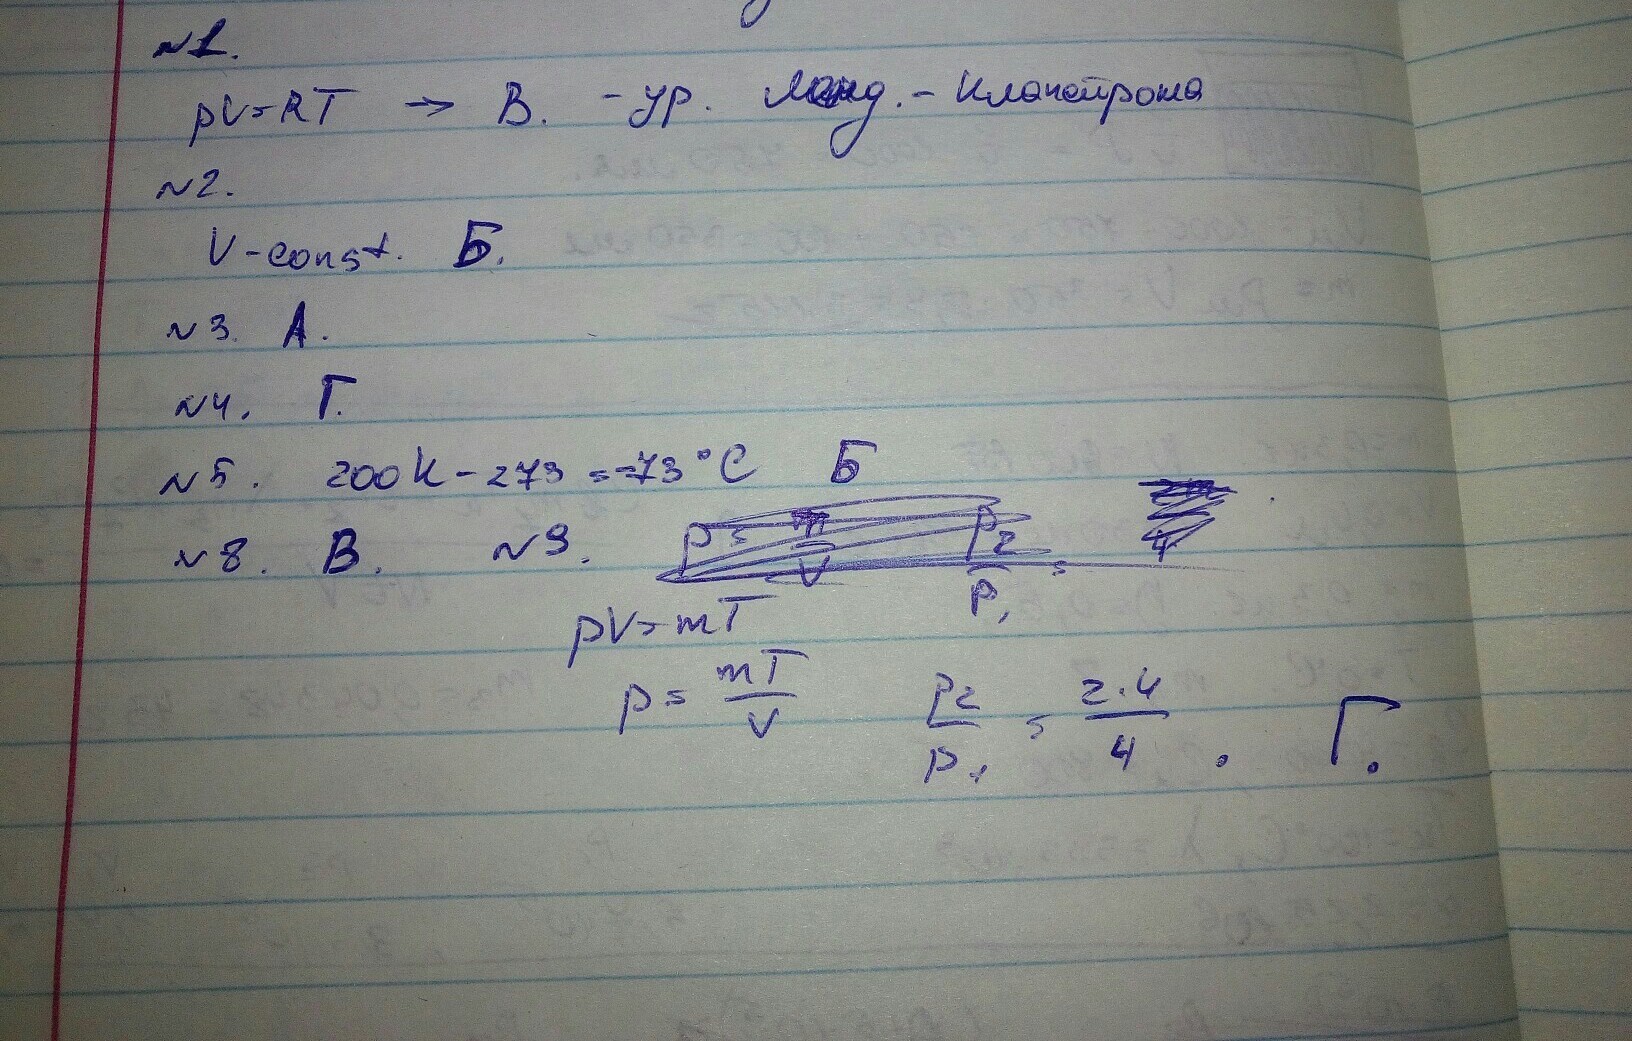 №1.
pV=RT → В. - ур. Менд. - Клапейрона
№2.
V-const. Б.
№3. А.
№4. Г.
№5. 200К - 273 = -73°С Б
№8. В. №9.
p₂/p₁ =
pV=mT
p = mT/V p₂/p₁ = 2·4/4. Г.